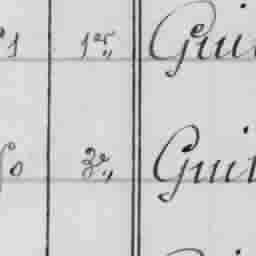 1 1er,, Gui
0 3e,, Guil